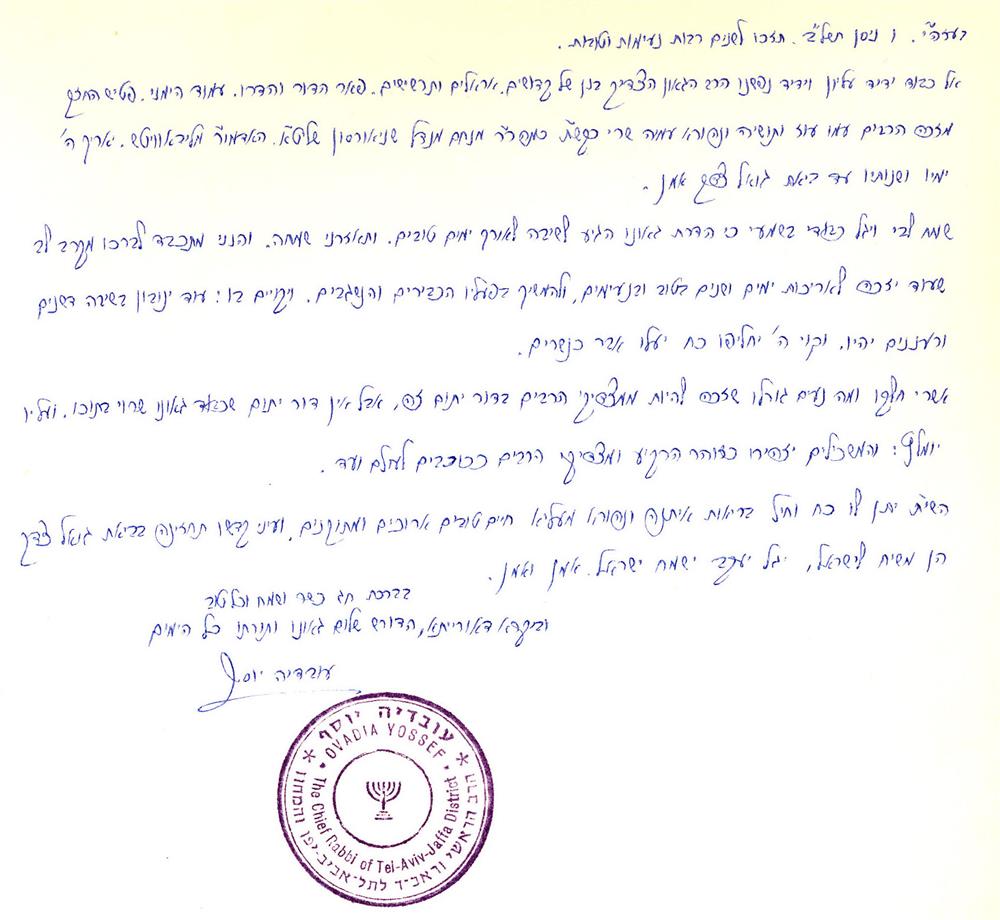 בעזה"י. ו ניסן תשל"ב. תזכו לשנים רבות נעימות וטובות.
אל כבוד ידיד עליון וידיד נפשנו הרב הגאון הצדיק בנן של קדושים. אראלים ותרשישים. פאר הדור והדרו. עמוד הימני. פטיש החזק
מזכה הרבים עמו עוז ותושיה ונהורא עמיה שרי כקש"ת כמהר"ר מנחם מנדל שניאורסון שליט"א. האדמו"ר מליבאוויטש. יאריך ה'
ימיו ושנותיו עד ביאת גואל צדק אמן.
שמח לבי ויגל כבודי בשמעי כי הדרת גאונו הגיע לשיבה לאורך ימים טובים. ותאזרני שמחה. והנני מתכבד לברכו מקרב לב
שעוד יזכה לאריכות ימים ושנים בטוב ובנעימים, ולהמשיך בפעליו הכבירים והנשגבים. ויקויים בו: עוד ינובון בשיבה דשנים
ורעננים יהיו. וקוי ה' יחליפו כח יעלו אבר כנשרים.
אשרי חלקו ומה נעים גורלו שזכה להיות ממצדיקי הרבים בדור יתום זה, אבל אין דור יתום שכבוד גאונו שרוי בתוכו. ועליו
יומלץ: והמשכילים יזהירו כזוהר הרקיע ומצדיקי הרבים ככוכבים לעולם ועד.
השי"ת יתן לו כח וחיל בריאות איתנה ונהורא מעליא חיים טובים ארוכים ומתוקנים, ועיני קדשו תחזינה בביאת גואל צדק
הן משיח לישראל, יגל יעקב ישמח ישראל. אמן ואמן.
בברכת חג כשר ושמח וכל טוב
וביקרא דאורייתא, הדורש שלום גאונו ותורתו כל הימים
עובדיה יוסף
עובדיה יוסף
OVADIA YOSSEF
The Chief Rabbi of Tel-Aviv-Jaffa District
הרב הראשי וראב"ד לתל-אביב-יפו והמחוז